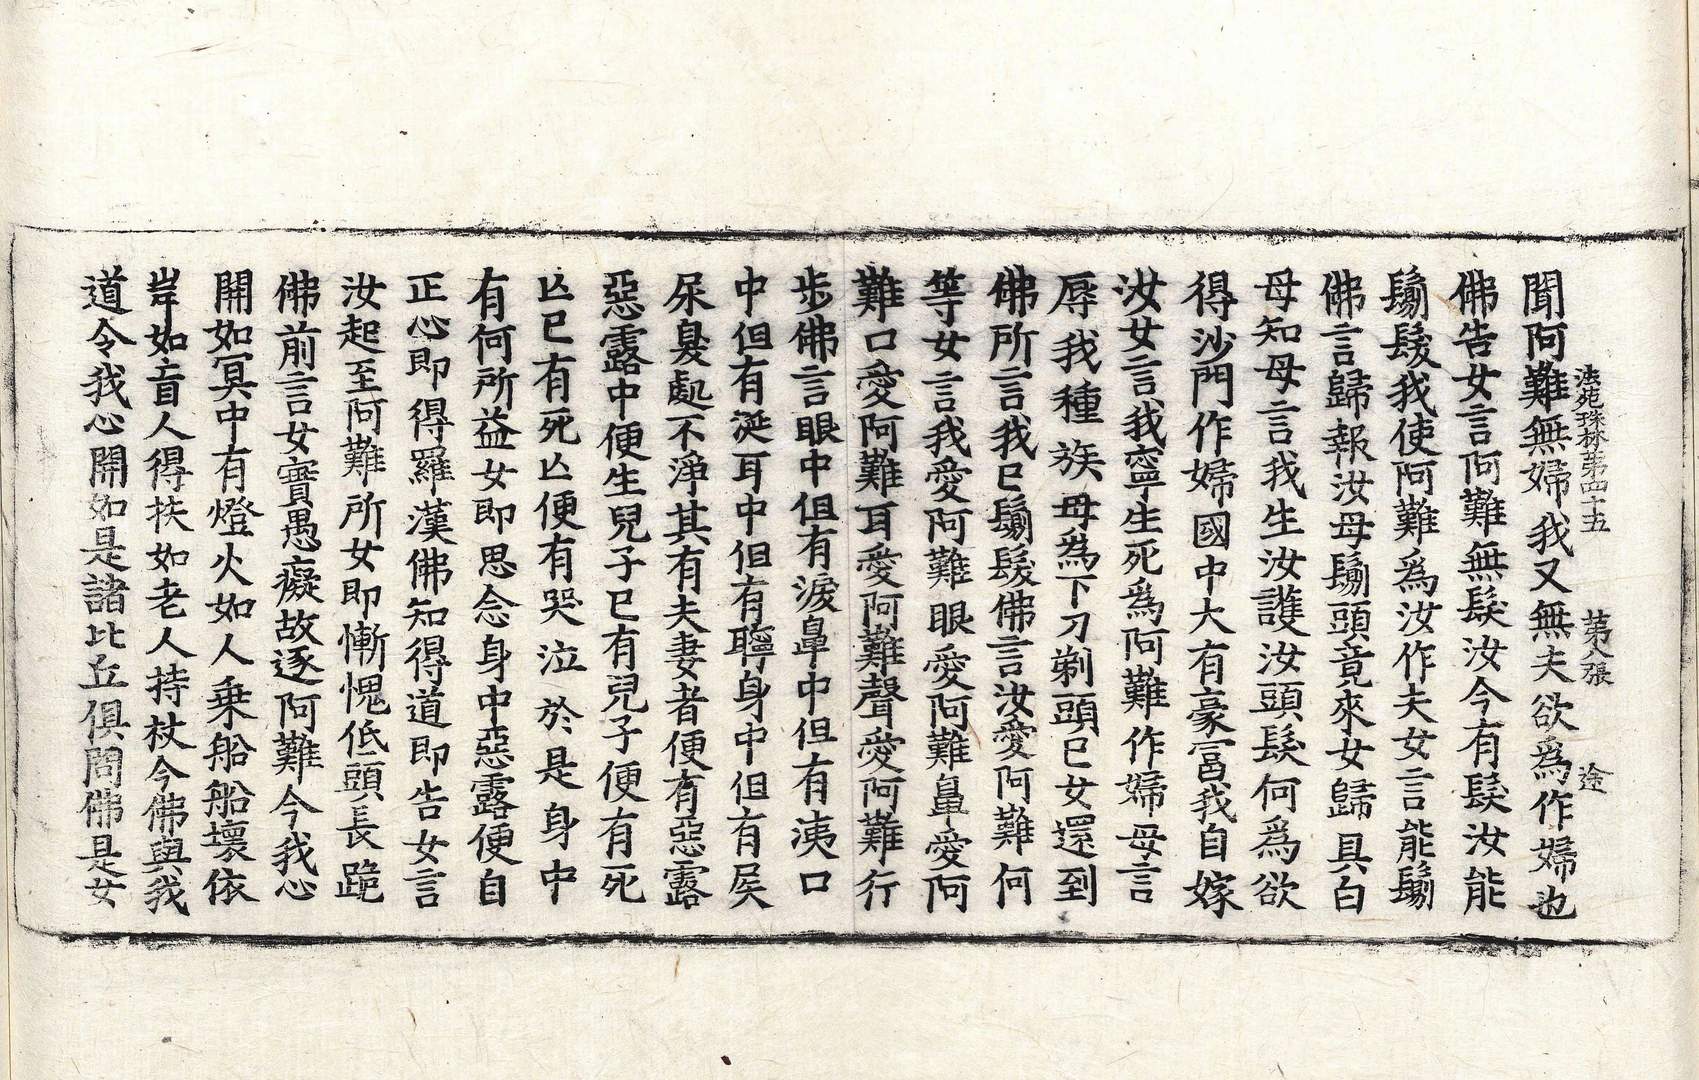 法苑珠林第四十五　第八張　途
聞阿難無婦我又無夫欲爲作婦也
佛告女言阿難無髮汝今有髮汝能
鬀髮我使阿難爲汝作夫女言能鬀
佛言歸報汝母鬀頭竟來女歸具白
母知母言我生汝護汝頭髮何爲欲
得沙門作婦國中大有豪富我自嫁
汝女言我寧生死爲阿難作婦母言
辱我種族母爲下刀剃頭已女還到
佛所言我已鬀髮佛言汝愛阿難何
等女言我愛阿難眼愛阿難鼻愛阿
難口愛阿難耳愛阿難聲愛阿難行
步佛言眼中但有淚鼻中但有洟口
中但有涎耳中但有聹身中但有屎
尿臭處不淨其有夫妻者便有惡露
惡露中便生兒子已有兒子便有死
亾已有死亾便有哭泣於是身中
有何所益女即思念身中惡露便自
正心即得羅漢佛知得道即告女言
汝起至阿難所女即慚愧低頭長跪
佛前言女實愚癡故逐阿難今我心
開如冥中有燈火如人乗船船壞依
岸如盲人得扶如老人持杖今佛與我
道令我心開如是諸比丘俱問佛是女